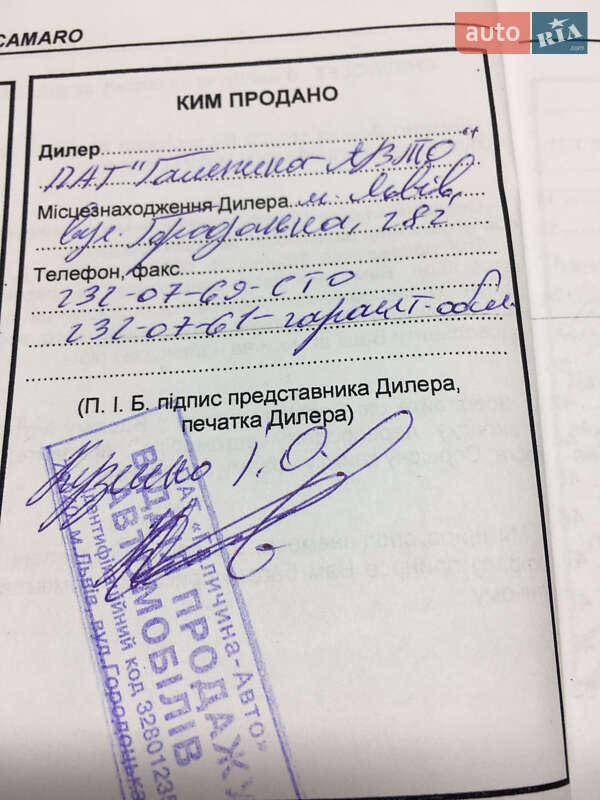 CAMARO
auto RIA .com
КИМ ПРОДАНО
Дилер
ПАТ "Галичина АВТО"
Місцезнаходження Дилера м. Львів,
вул. Городоцька, 282
Телефон, факс
232-07-69-СТО
232-07-61-гарант. обсл.
(П. І. Б. підпис представника Дилера,
печатка Дилера)
І. О.
ПАТ «Галичина-Авто»
ВІДДІЛ ПРОДАЖУ
АВТОМОБІЛІВ
Ідентифікаційний код 3280123
м.Львів, вул.Городоцька